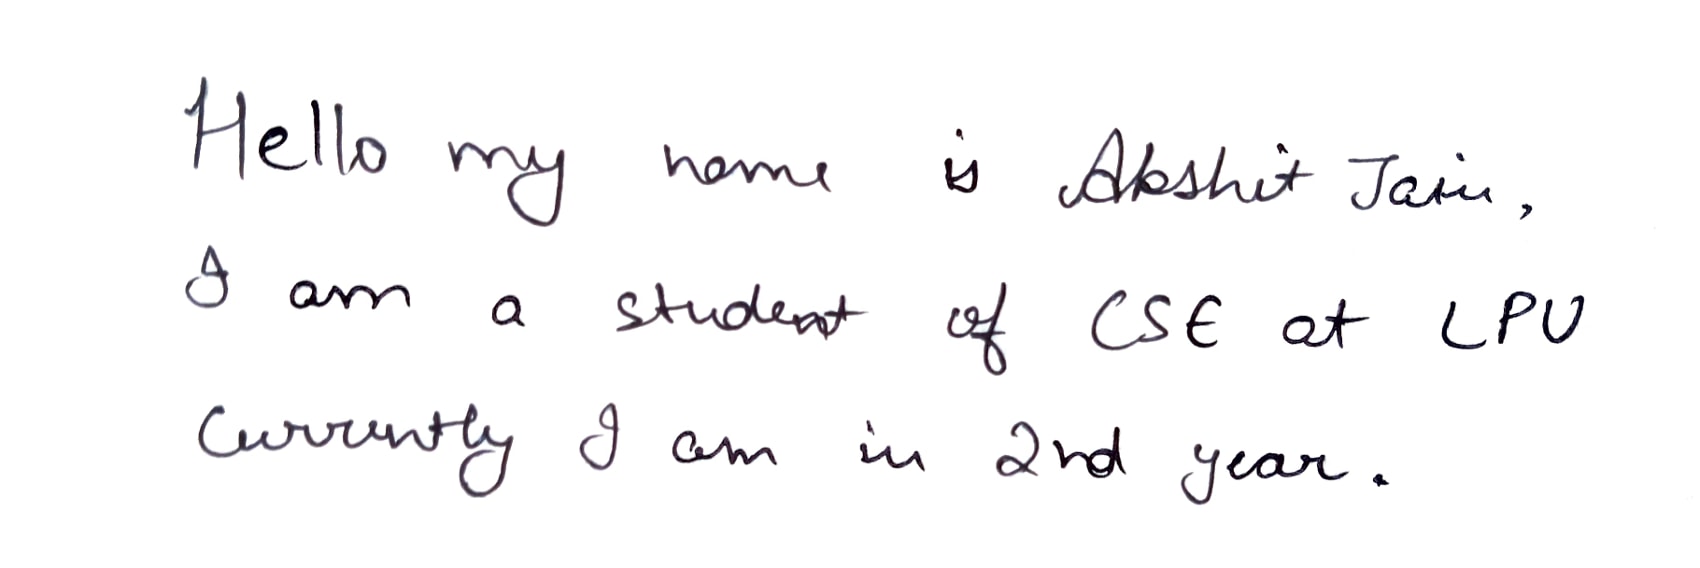 Hello my name is Akshit Jain,
I am a student of CSE at LPU
Currently I am in 2nd year.